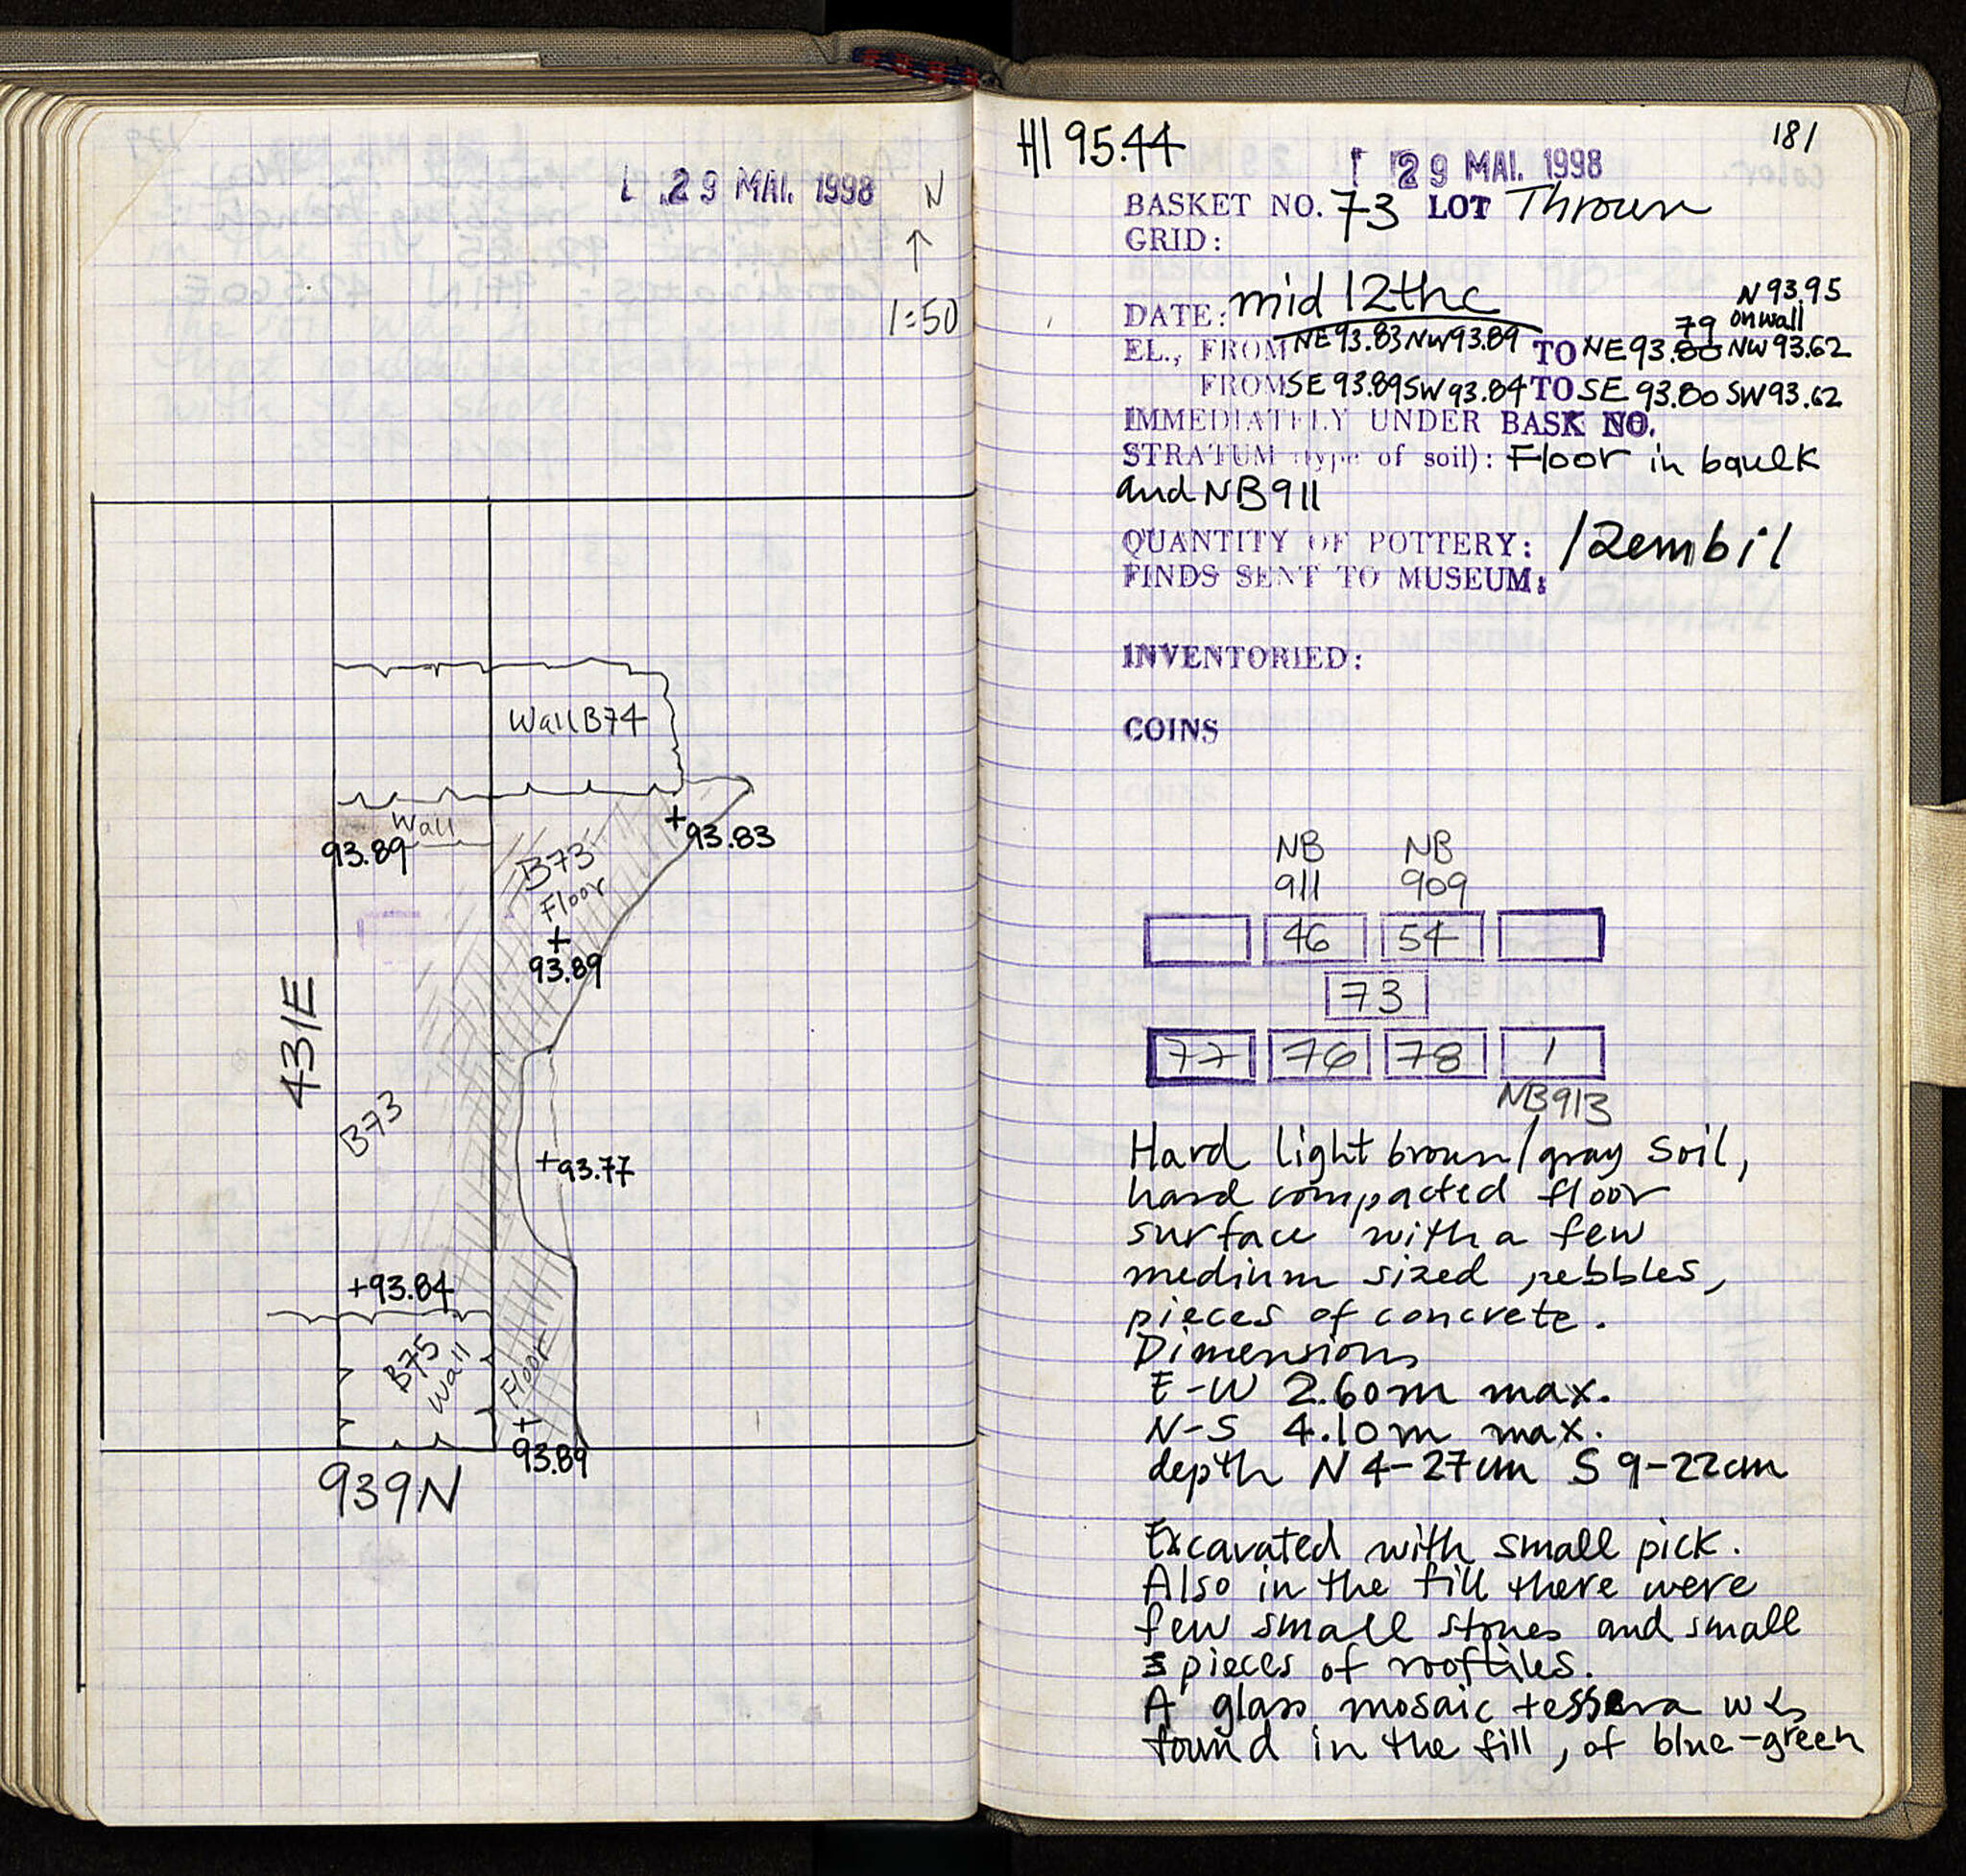 29 MAI. 1998
N
1:50
Wall B74
Wall
93.89
+93.83
B73
Floor
+
93.89
431E
B73
+93.77
+93.84
B75
Wall
Floor
+
93.89
939N
HI 95.44
181
29 MAI. 1998
BASKET NO. 73 LOT Thrown
GRID:
DATE: mid 12th c
N 93.95
on wall
79
EL., FROM NE 93.83 NW 93.89 TO NE 93.80 NW 93.62
FROM SE 93.89 SW 93.84 TO SE 93.80 SW 93.62
IMMEDIATELY UNDER BASK NO.
STRATUM (type of soil): Floor in baulk
and NB911
QUANTITY OF POTTERY: 1 Zembil
FINDS SENT TO MUSEUM:
INVENTORIED:
COINS
NB NB
911 909
46 54
73
77 76 78 1
NB913
Hard light brown/gray soil,
hard compacted floor
surface with a few
medium sized pebbles,
pieces of concrete.
Dimensions
E-W 2.60m max.
N-S 4.10m max.
depth N 4-27cm S 9-22cm
Excavated with small pick.
Also in the fill there were
few small stones and small
pieces of rooftiles.
A glass mosaic tessera was
found in the fill, of blue-green